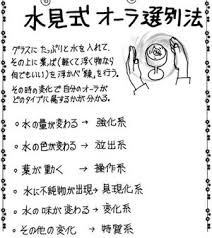 水見式 オーラ選別法
グラスに たっぷりと 水を入れて、
その上に 葉っぱ(軽くて浮く物なら
何でもいい)を浮かべ「練」を行う。
その時の変化で 自分のオーラが
どのタイプに属するかが分かる。
• 水の量が変わる → 強化系
• 水の色が変わる → 放出系
• 葉が動く → 操作系
• 水に不純物が出現 → 具現化系
• 水の味が変わる → 変化系
• その他の変化 → 特質系